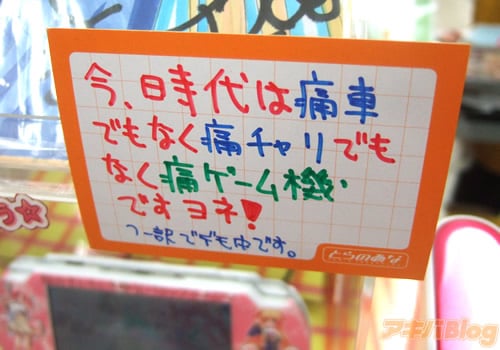 今、時代は痛車
でもなく痛チャリでも
なく痛ゲーム機
ですヨネ!
って訳でデモ中です。
とらのあな
う☆
アキバBlog